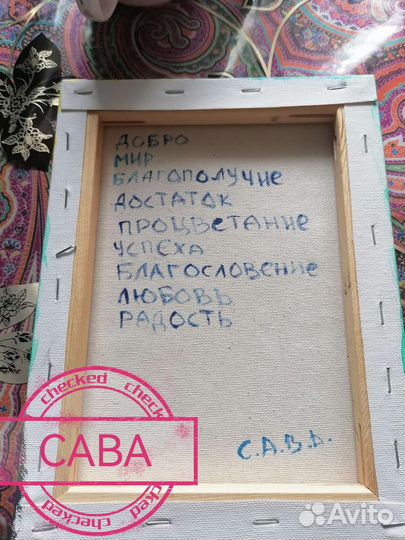 ДОБРО
МИР
БЛАГОПОЛУЧИЕ
ДОСТАТОК
ПРОЦВЕТАНИЕ
УСПЕХА
БЛАГОСЛОВЕНИЕ
ЛЮБОВЬ
РАДОСТЬ
С.А.В.А.
checked checked
САВА
checked checked
Avito